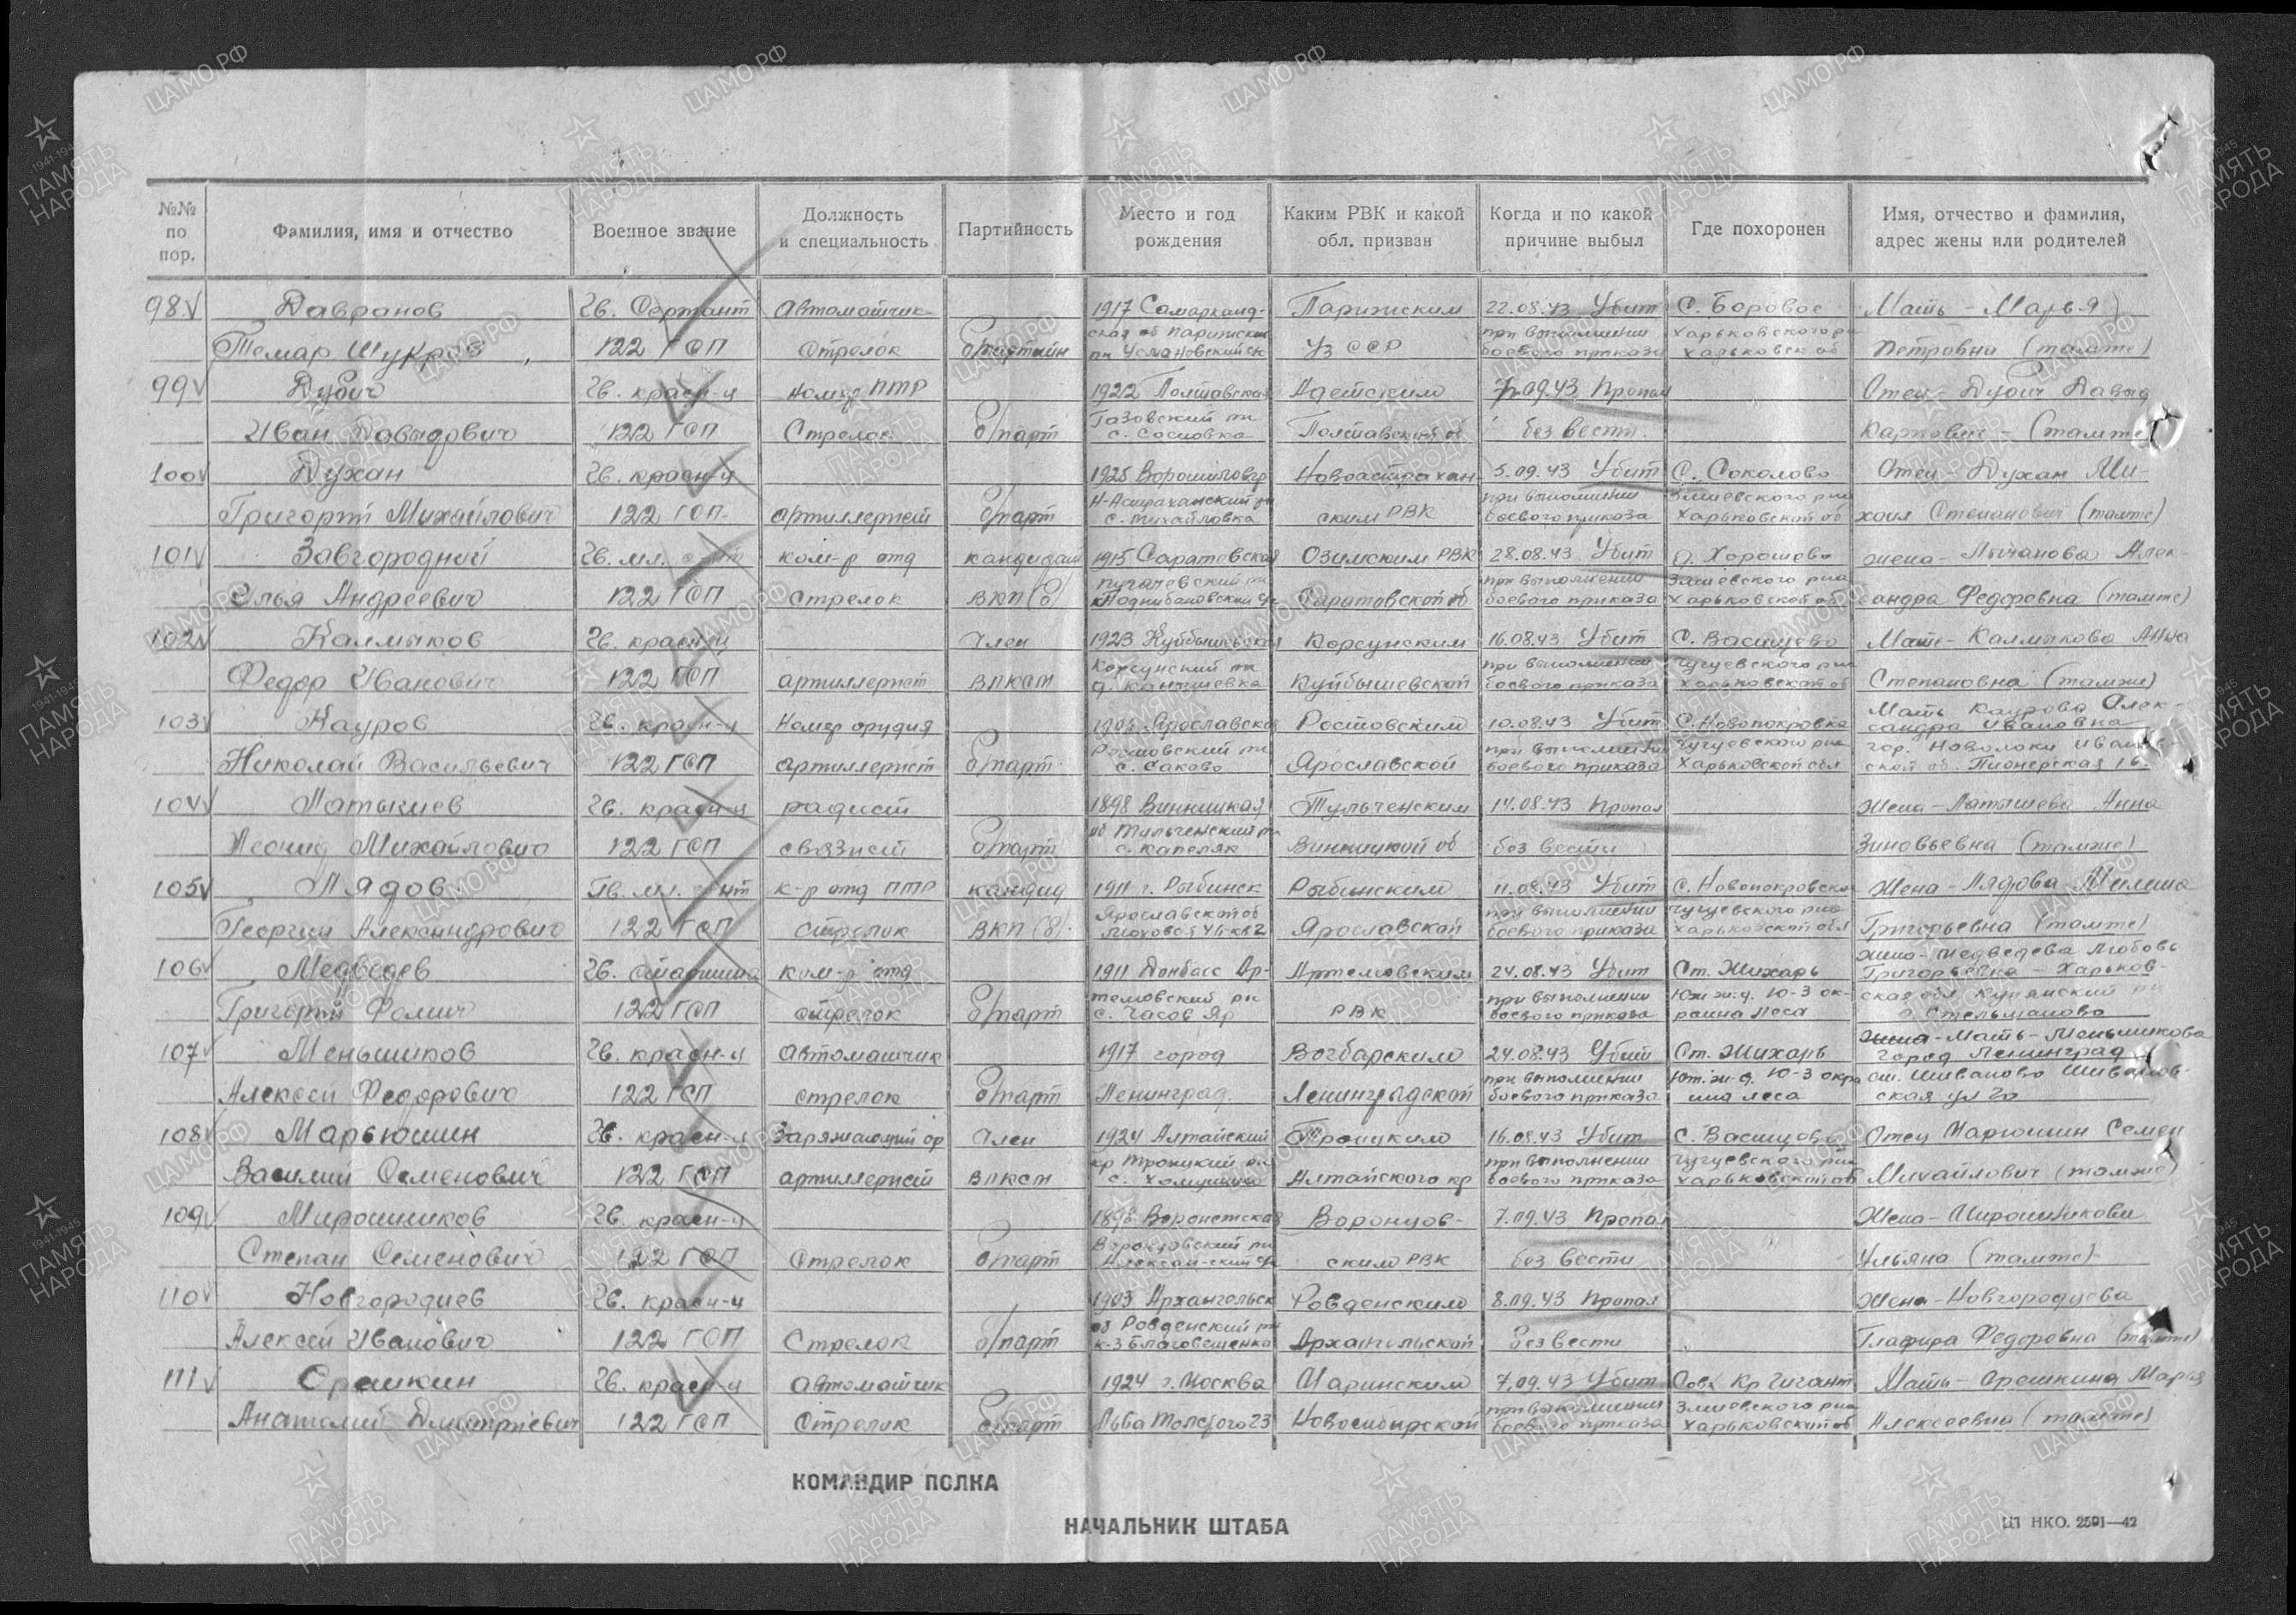 №№ по пор.
Фамилия, имя и отчество
Военное звание
Должность и специальность
Партийность
Место и год рождения
Каким РВК и какой обл. призван
Когда и по какой причине выбыл
Где похоронен
Имя, отчество и фамилия, адрес жены или родителей
98 Давранов Гв. Сержант Автоматчик 1917 Самарканд- Парижским 22.08.43 Убит С. Боровое Мать - Марья
Темар 122 ГСП Стрелок б/партийн УзССР при выполнении боевого приказа Харьковского рн Харьковск об Петровна (тамже)
99 Дубич Гв. красн-ц номер ПТР 1922 Полтавская 7.09.43 Пропал Отец - Дубич Давыд
Иван Давыдович 122 ГСП Стрелок б/парт с. Сосновка Полтавской об без вести Карпович - (тамже)
100 Духан Гв. красн-ц 1925 Ворошиловгр Новоастрахан 5.09.43 Убит С. Соколово Отец - Духан Ми-
Григорий Михайлович 122 ГСП артиллерист б/парт Н-Астраханский рн с. Михайловка ским РВК при выполнении боевого приказа Змиевского рна Харьковской об хаил Степанович (тамже)
101 Завгородний Гв. мл. ком-р отд кандидат 1915 Саратовская РВК 28.08.43 Убит Хорошево жена - Алек-
Илья Андреевич 122 ГСП Стрелок ВКП(б) Пугачевский рн Саратовской об при выполнении боевого приказа Змиевского рна Харьковской об сандра Федоровна (тамже)
102 Калмыков Гв. красн-ц Член 1923 Куйбышевская Корсунским 16.08.43 Убит С. Васищево Мать - Калмыкова Анна
Федор Иванович 122 ГСП артиллерист ВЛКСМ Корсунский рн Куйбышевской при выполнении боевого приказа Чугуевского рна Харьковской об Степановна (тамже)
103 Кауров Гв. красн-ц Номер орудия Ярославская Ростовским 10.08.43 Убит С. Новопокровка Мать Каурова Алек-
сандра Ивановна
Николай Васильевич 122 ГСП артиллерист б/парт Ростовский рн с. Саково Ярославской при выполнении боевого приказа Чугуевского рна Харьковской обл гор. Новолоки Иванов-
ской об. Пионерская 16.
104 Латышев Гв. красн-ц радист 1898 Винницкая Тульченским 14.08.43 Пропал Жена - Латышева Анна
Леонид Михайлович 122 ГСП связист б/парт об Тульченский рн Винницкой об без вести Зиновьевна (тамже)
105 Лядов Гв. мл. к-р отд ПТР кандид 1911 г. Рыбинск Рыбинским 11.08.43 Убит С. Новопокровское Жена - Лядова
Георгий Александрович 122 ГСП стрелок ВКП(б). Ярославской об Ярославской при выполнении боевого приказа Чугуевского рна Харьковской обл Григорьевна (тамже)
106 Медведев Гв. старшина ком-р отд 1911 Донбасс Ар- Артемовским 24.08.43 Убит Ст. Жихарь жена - Медведева Любовь
Григорьевна - Харьков-
Григорий Фомич 122 ГСП стрелок б/парт темовский рн с. Часов Яр РВК при выполнении боевого приказа Юж ж.д. Ю-З ок- раина леса ская обл Купянский рн
107 Меньшиков Гв. красн-ц Автоматчик 1917 город 24.08.43 Убит Ст. Жихарь Мать - Меньшикова
город Ленинград
Алексей Федорович 122 ГСП стрелок б/парт Ленинград. Ленинградской при выполнении боевого приказа Юж. ж.д. Ю-З окра ина леса
108 Марьюшин Гв. красн-ц Заряжающий ор Член 1924 Алтайский Троицким 16.08.43 Убит С. Васищево Отец Марюшин Семен
Василий Семенович 122 ГСП артиллерист ВЛКСМ кр Троицкий рн Алтайского кр при выполнении боевого приказа Чугуевского рна Харьковской об Михайлович (тамже)
109 Мирошников Гв. красн-ц Воронежская Воронцов- 7.09.43 Пропал Жена - Мирошникова
Степан Семенович 122 ГСП Стрелок б/парт Воронцовский рн ским РВК без вести Ульяна (тамже)
110 Новгородцев Гв. красн-ц 1903 Архангельск Ровденским 8.09.43 Пропал Жена - Новгородцева
Алексей Иванович 122 ГСП Стрелок б/парт об Ровденский рн Архангельской без вести Глафира Федоровна (тамже)
111 Орешкин Гв. красн-ц автоматчик 1924 г. Москва Маринским 7.09.43 Убит Совх Кр Гигант Мать - Орешкина Марья
Анатолий Дмитриевич 122 ГСП Стрелок б/парт Льва Толстого 23 Новосибирской при выполнении боевого приказа Змиевского рна Харьковской об Алексеевна (тамже)
КОМАНДИР ПОЛКА
НАЧАЛЬНИК ШТАБА
ЦТ НКО. 2591—42
ЦАМО.РФ
1941-1945
ПАМЯТЬ НАРОДА